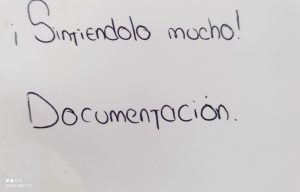 ¡Sintiendolo mucho!
Documentación.